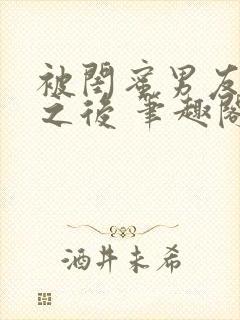 被閨蜜男友
之後 筆趣閣
酒井未希